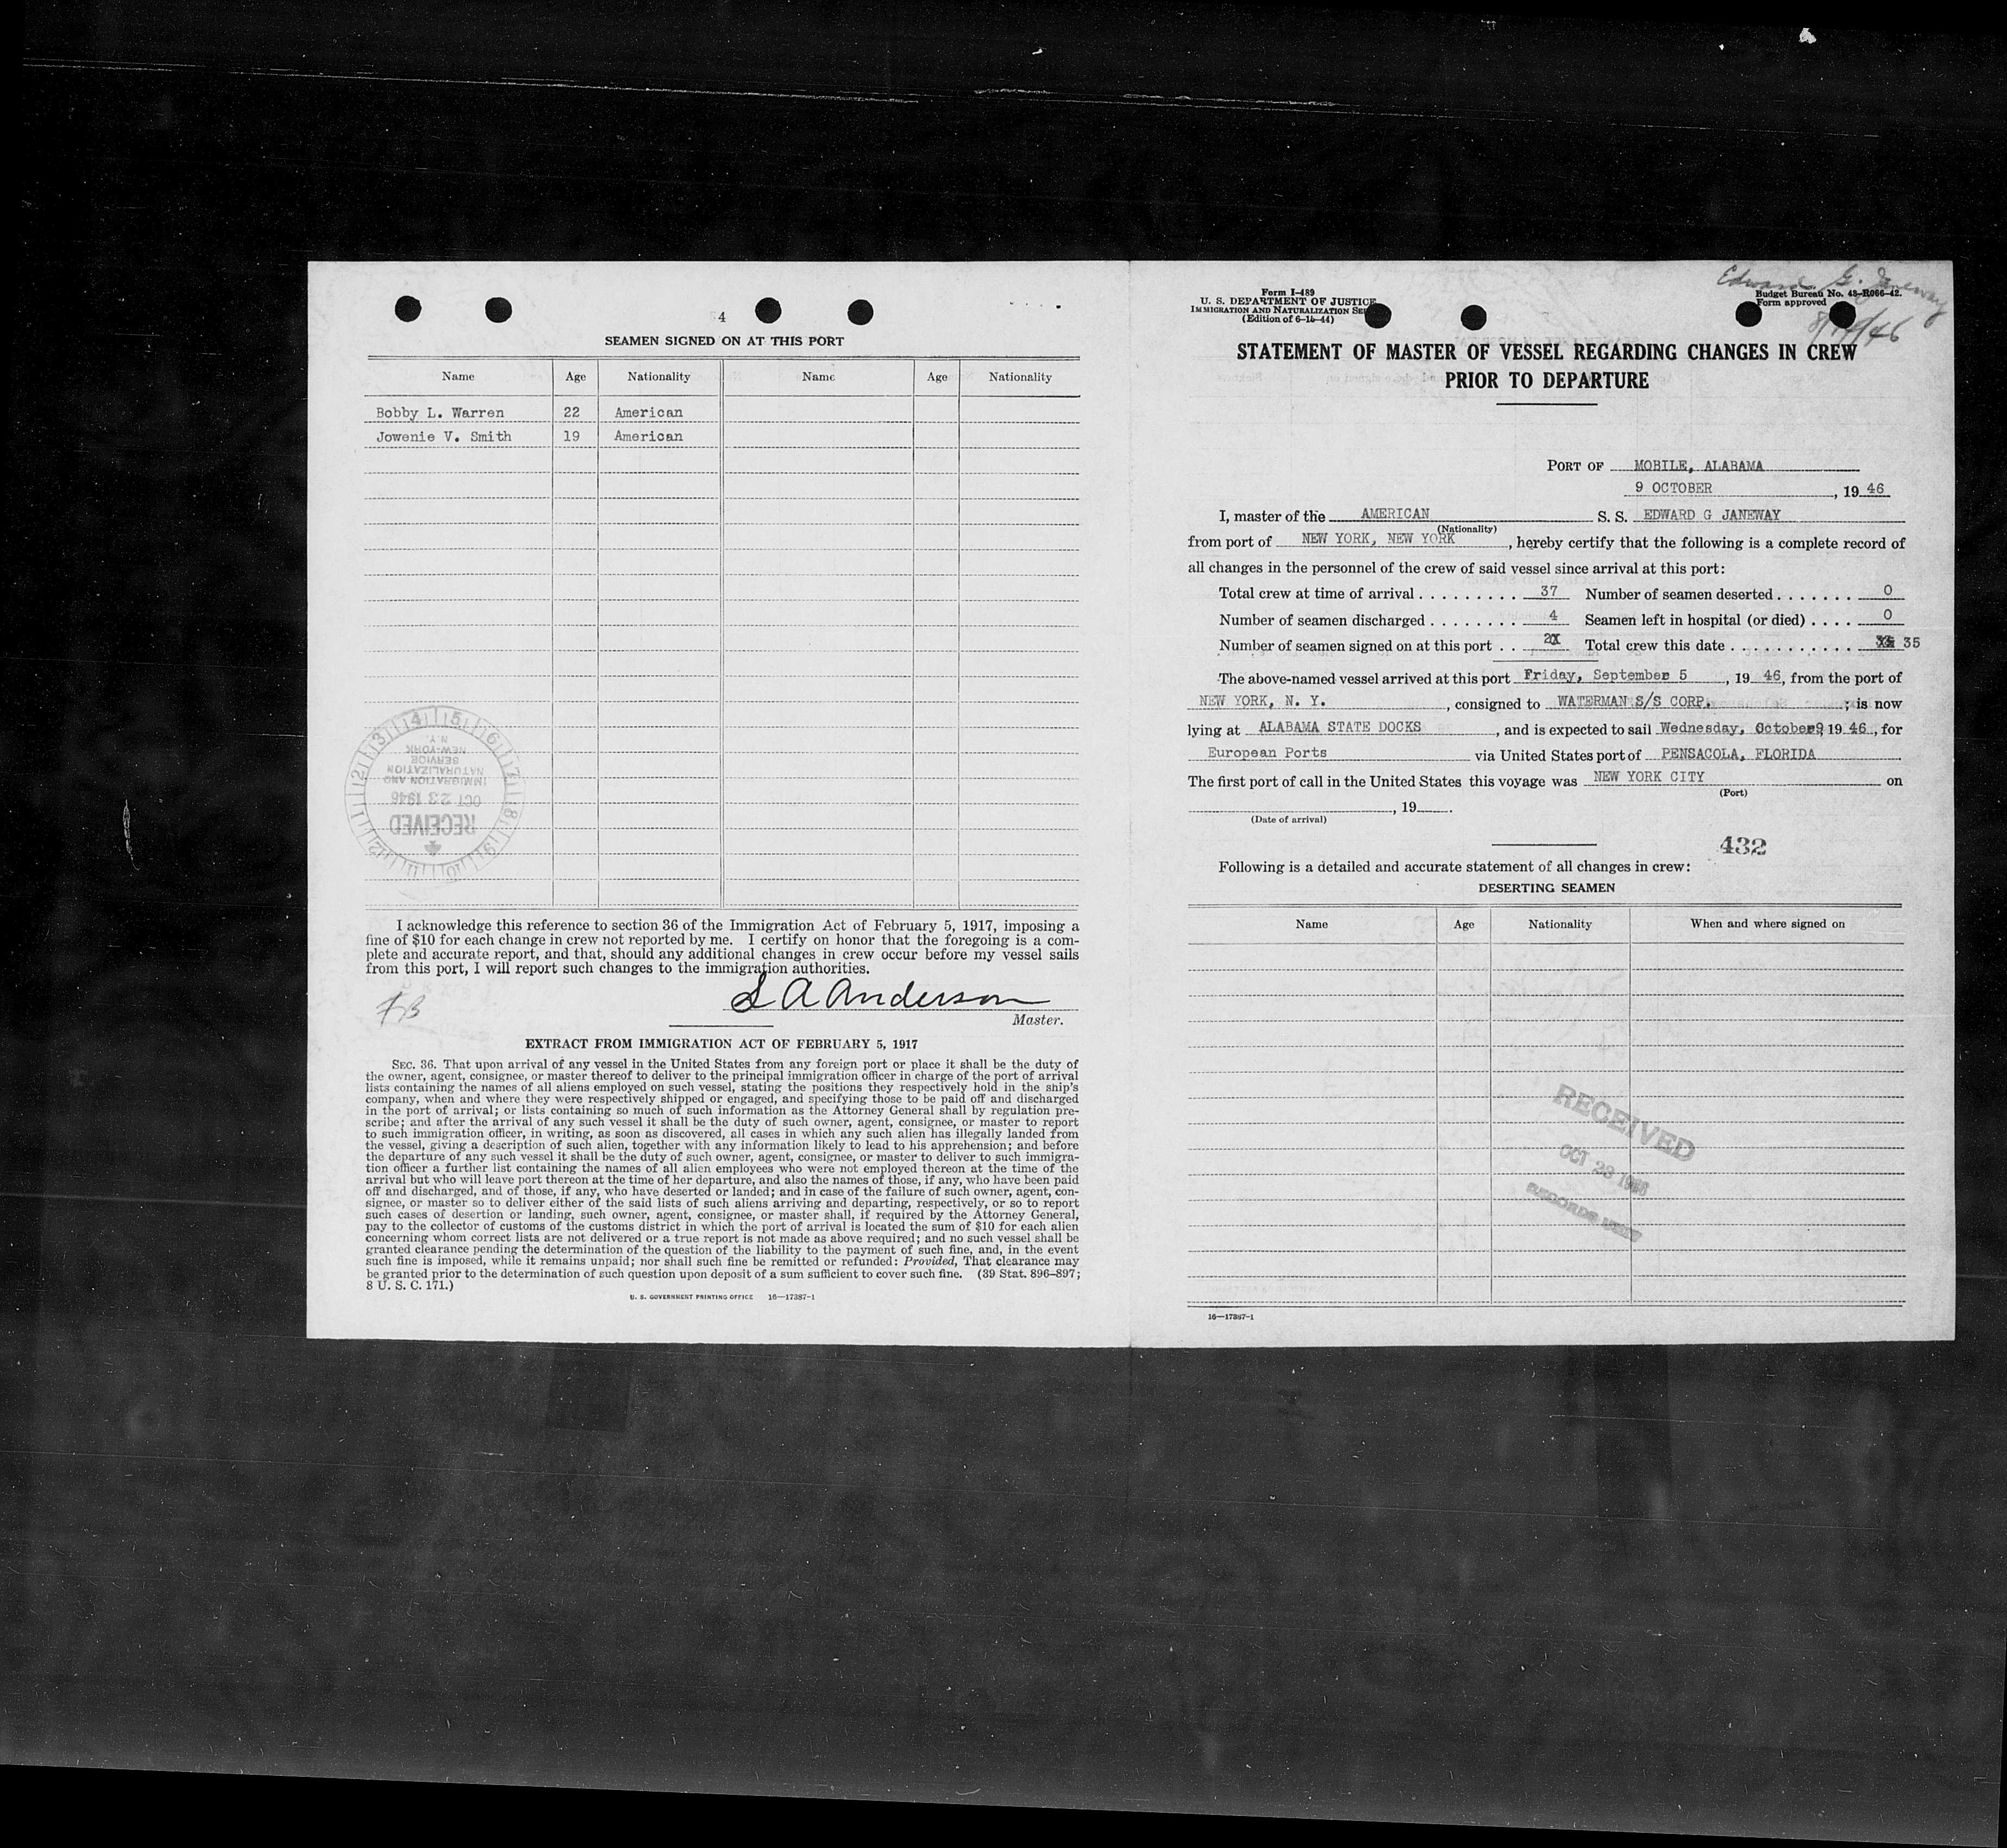 4
SEAMEN SIGNED ON AT THIS PORT
Name Age Nationality Name Age Nationality
Bobby L. Warren 22 American
Jowenie V. Smith 19 American
RECEIVED
OCT 23 1946
IMMIGRATION AND
NATURALIZATION
SERVICE
NEW-YORK
N.Y.
I acknowledge this reference to section 36 of the Immigration Act of February 5, 1917, imposing a
fine of $10 for each change in crew not reported by me. I certify on honor that the foregoing is a com-
plete and accurate report, and that, should any additional changes in crew occur before my vessel sails
from this port, I will report such changes to the immigration authorities.
S A Anderson
Master.
EXTRACT FROM IMMIGRATION ACT OF FEBRUARY 5, 1917
SEC. 36. That upon arrival of any vessel in the United States from any foreign port or place it shall be the duty of
the owner, agent, consignee, or master thereof to deliver to the principal immigration officer in charge of the port of arrival
lists containing the names of all aliens employed on such vessel, stating the positions they respectively hold in the ship's
company, when and where they were respectively shipped or engaged, and specifying those to be paid off and discharged
in the port of arrival; or lists containing so much of such information as the Attorney General shall by regulation pre-
scribe; and after the arrival of any such vessel it shall be the duty of such owner, agent, consignee, or master to report
to such immigration officer, in writing, as soon as discovered, all cases in which any such alien has illegally landed from
the vessel, giving a description of such alien, together with any information likely to lead to his apprehension; and before
the departure of any such vessel it shall be the duty of such owner, agent, consignee, or master to deliver to such immigra-
tion officer a further list containing the names of all alien employees who were not employed thereon at the time of the
arrival but who will leave port thereon at the time of her departure, and also the names of those, if any, who have been paid
off and discharged, and of those, if any, who have deserted or landed; and in case of the failure of such owner, agent, con-
signee, or master so to deliver either of the said lists of such aliens arriving and departing, respectively, or so to report
such cases of desertion or landing, such owner, agent, consignee, or master shall, if required by the Attorney General,
pay to the collector of customs of the customs district in which the port of arrival is located the sum of $10 for each alien
concerning whom correct lists are not delivered or a true report is not made as above required; and no such vessel shall be
granted clearance pending the determination of the question of the liability to the payment of such fine, and, in the event
such fine is imposed, while it remains unpaid; nor shall such fine be remitted or refunded: Provided, That clearance may
be granted prior to the determination of such question upon deposit of a sum sufficient to cover such fine. (39 Stat. 896–897;
8 U. S. C. 171.)
U. S. GOVERNMENT PRINTING OFFICE 16—17387-1
Edward G. Janeway
Form I-489
U. S. DEPARTMENT OF JUSTICE
IMMIGRATION AND NATURALIZATION
(Edition of 6-15-44)
Budget Bureau No. 43-R066-42.
Form approved
STATEMENT OF MASTER OF VESSEL REGARDING CHANGES IN CREW
PRIOR TO DEPARTURE
PORT OF MOBILE, ALABAMA
9 OCTOBER, 19 46
I, master of the AMERICAN S. S. EDWARD G JANEWAY
(Nationality)
from port of NEW YORK, NEW YORK, hereby certify that the following is a complete record of
all changes in the personnel of the crew of said vessel since arrival at this port:
Total crew at time of arrival 37 Number of seamen deserted 0
Number of seamen discharged 4 Seamen left in hospital (or died) 0
Number of seamen signed on at this port 2 Total crew this date 35
The above-named vessel arrived at this port Friday, September 5, 19 46, from the port of
NEW YORK, N. Y., consigned to WATERMAN S/S CORP.; is now
lying at ALABAMA STATE DOCKS, and is expected to sail Wednesday, October 9, 19 46, for
European Ports via United States port of PENSACOLA, FLORIDA
The first port of call in the United States this voyage was NEW YORK CITY on
(Port)
, 19 .
(Date of arrival)
432
Following is a detailed and accurate statement of all changes in crew:
DESERTING SEAMEN
Name Age Nationality When and where signed on
RECEIVED
OCT 23 1946
16—17387-1